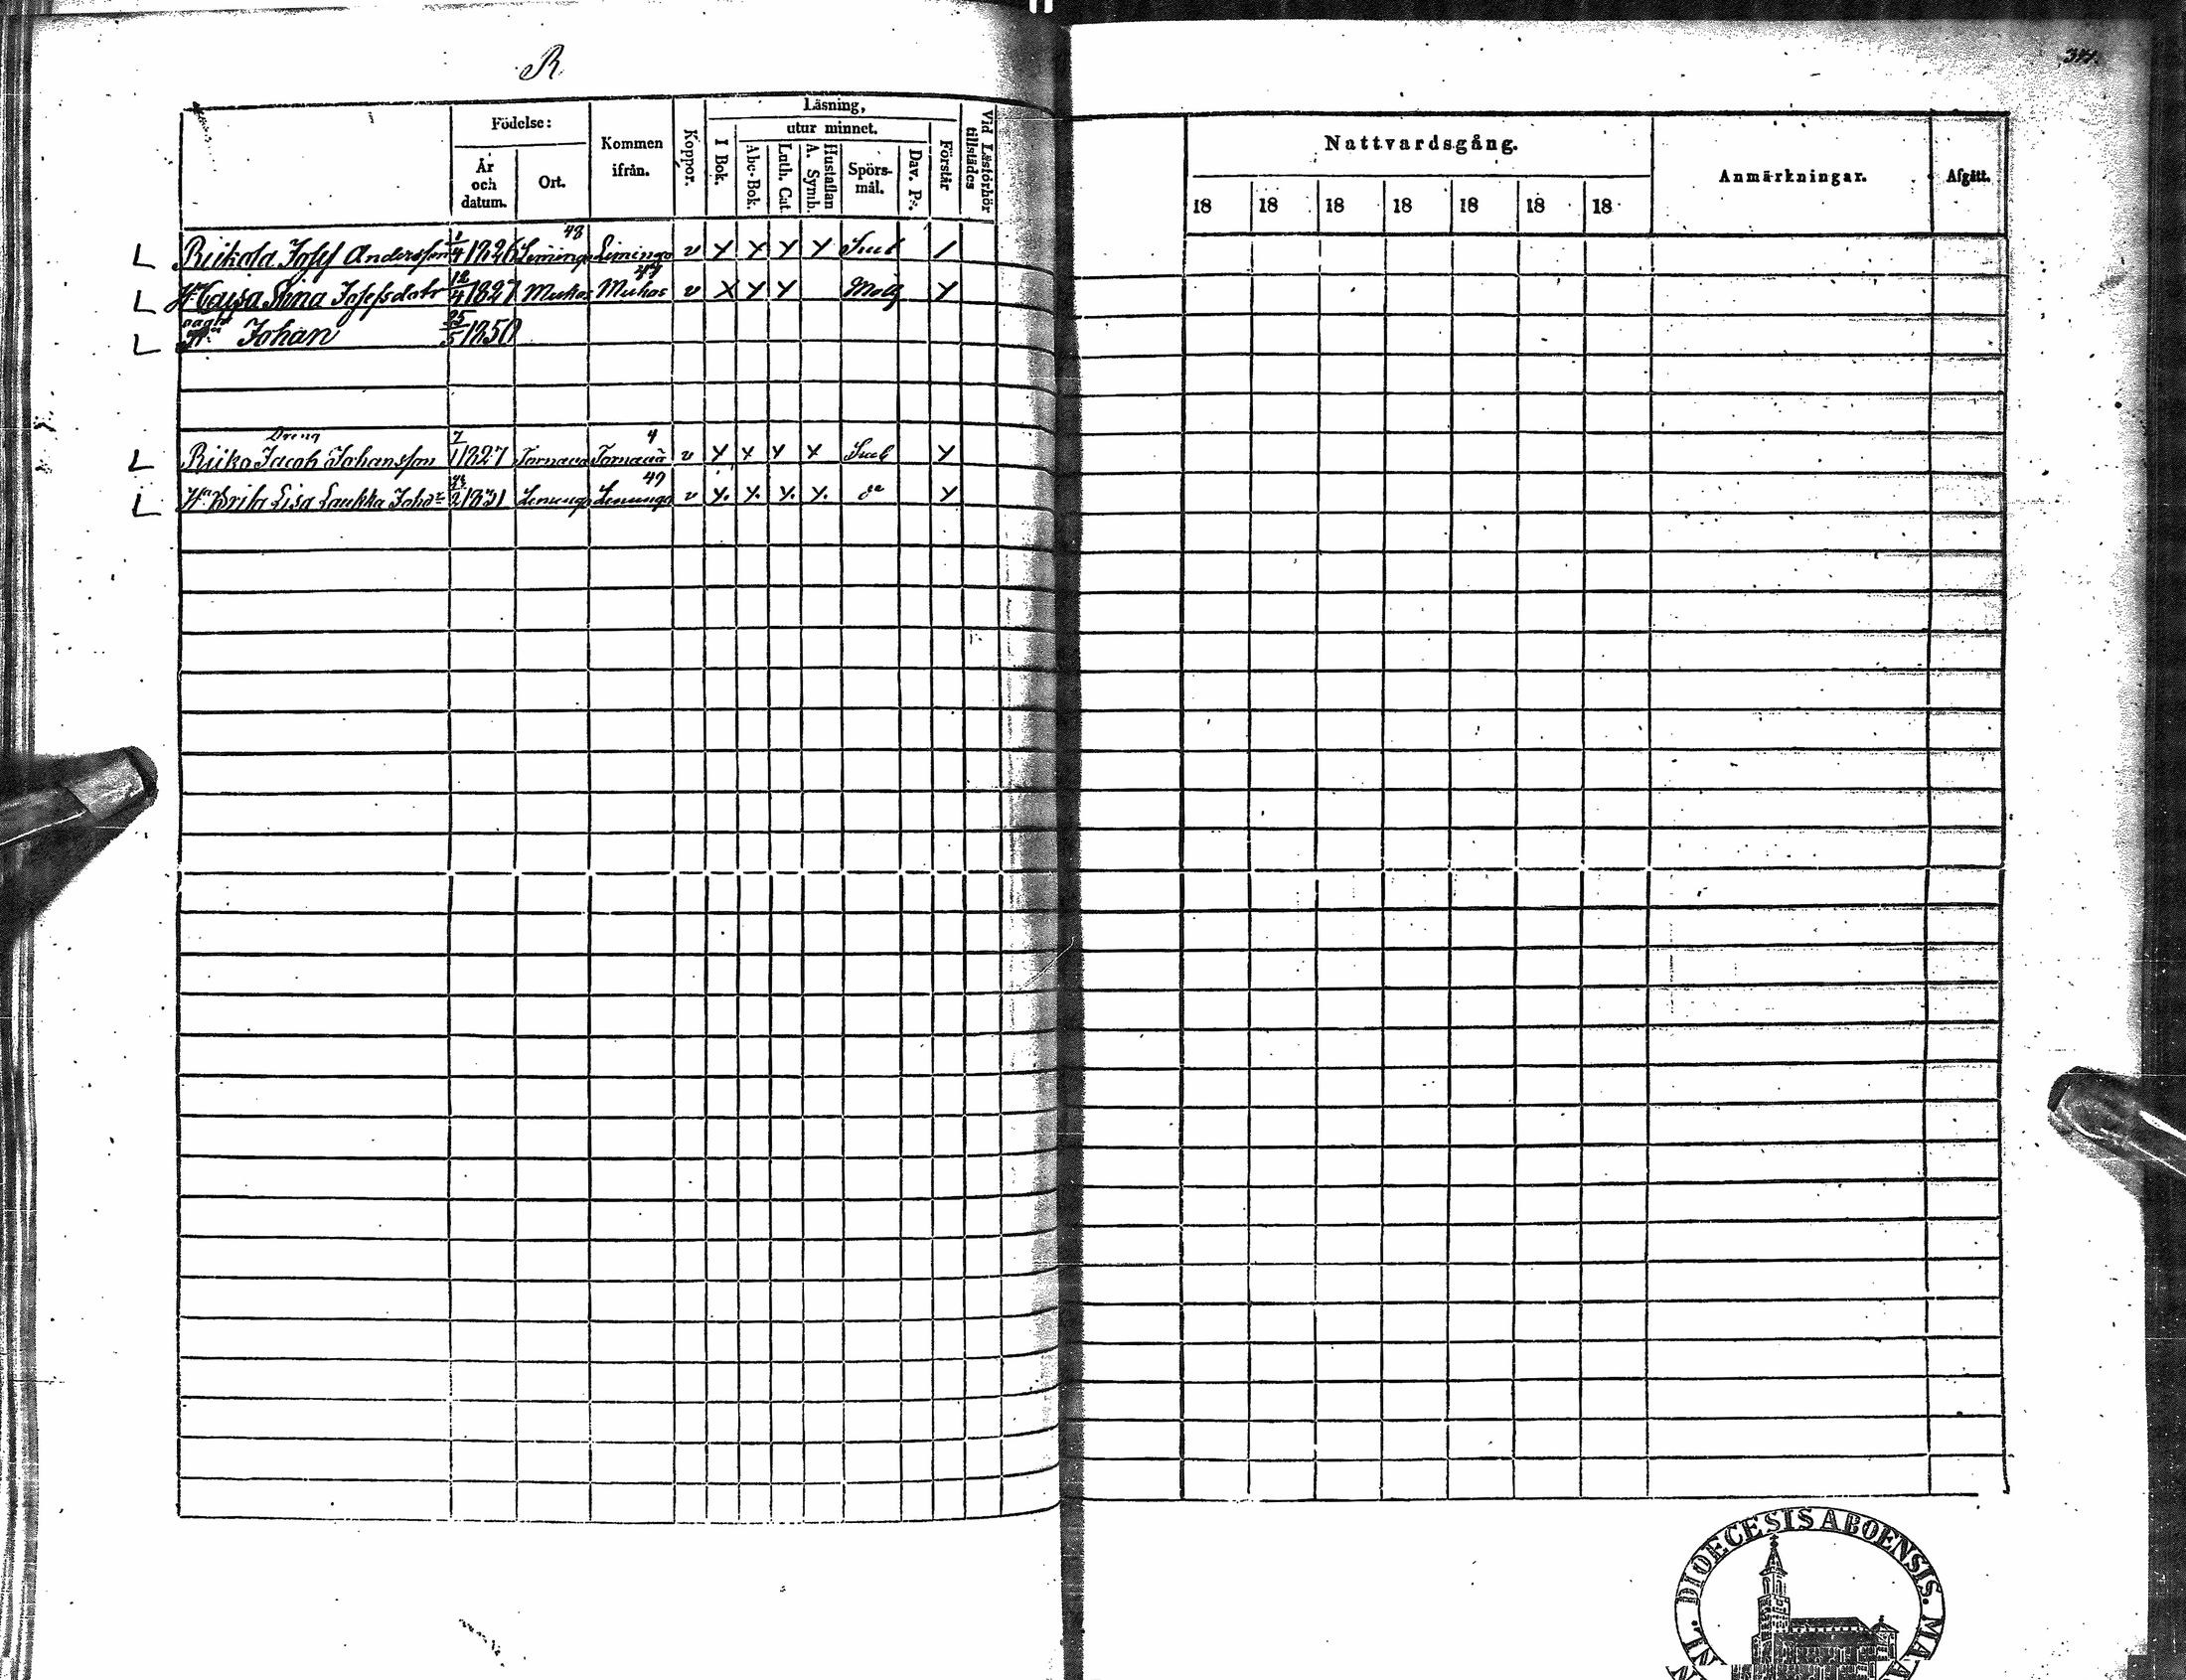 R
Födelse:
År och datum.
Ort.
Kommen ifrån.
Koppor.
Läsning,
I Bok.
utur minnet.
Abc-Bok.
Luth. Cat.
Hustaflan A. Symb.
Spörsmål.
Dav. Ps.
Förstår
Vid Läsförhör tillstädes
48
L Riikola Josef Andersson 1/4 1826 Limingo Limingo v Y Y Y Y Sml /
47
L Hu Caisa Stina Josefsdotr 12/4 1827 Muhos Muhos v X Y Y Y
L Johan 25/5 1850
Dreng 4
L Riiko Jacob Johansson 7/1 1827 Tornaeå Tornaeå v Y Y Y Y Sml Y
49
L Hu Brita Lisa Laukka Johsr 23/2 1831 Limingo Limingo v Y. Y. Y. Y. do Y
Nattvardsgång.
18 18 18 18 18 18 18
Anmärkningar.
Afgått.
DIOECESIS ABOENSIS.